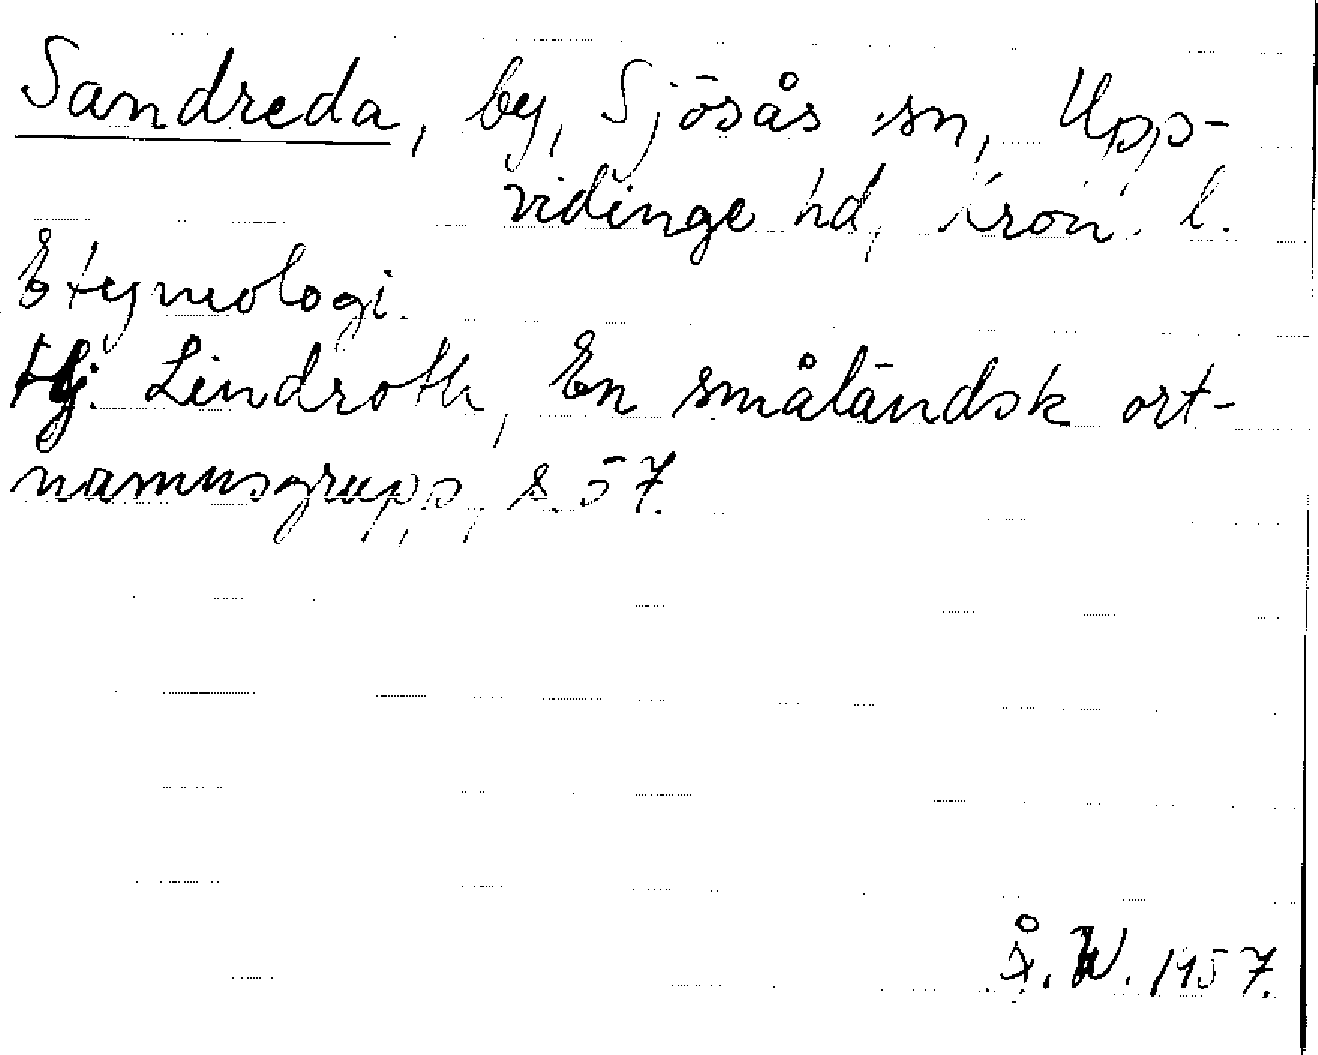 Sandreda, by, Sjösås sn, Upp-
vidinge hd, Kron. l.
Etymologi.
Hj. Lindroth, En småländsk ort-
namnsgrupp, s. 57.
Å. W. 1957.